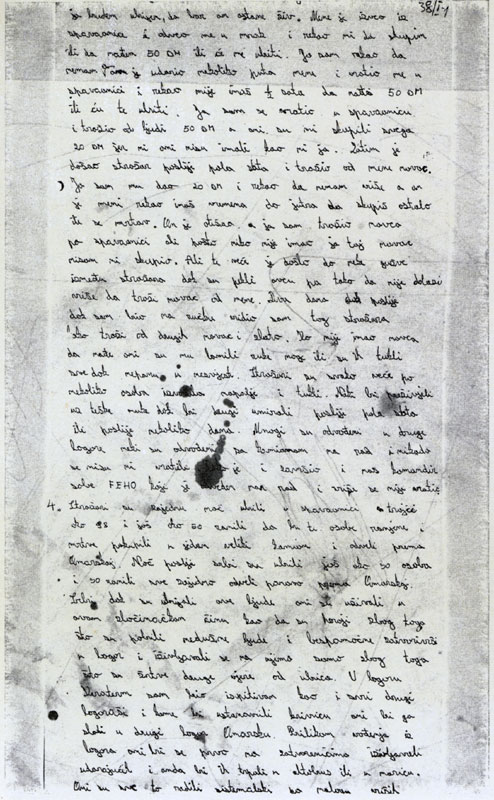 38/I-1
ja budem ubijen, da bar on ostane živ. Mene je izveo iz
spavaonice i odveo me u mrak i rekao mi da skupim
ili da nađem 50 DM ili će me ubiti. Ja sam rekao da
nemam je udario nekoliko puta mene i vratio me u
spavaonici i rekao mi je imaš ½ sata da nađeš 50 DM
ili ću te ubiti. Ja sam se vratio u spavaonicu
i tražio od ljudi 50 DM a oni su mi skupili svega
20 DM jer ni oni nisu imali kao ni ja. Zatim je
došao stražar poslije pola sata i tražio od mene novac.
Ja sam mu dao 20 DM i rekao da nemam više a on
je meni rekao imaš vremena do jutra da skupiš ostalo
ili si mrtav. On je otišao a ja sam tražio novca
po spavaonici ali pošto niko nije imao ja taj novac
nisam ni skupio. Ali te veče je došlo do neke gužve
između stražara dok su pekli ovcu pa tako da nije dolazio
više da traži novac od mene. Dva dana poslije
dok sam bio na ručku vidio sam tog stražara
kako traži od drugih novac i zlato. Ko nije imao novca
da nađe oni su mu lomili ruke noge ili su ih tukli
sve dok nepanu u nesvijest. Stražari su svako veče po
nekoliko osoba izvodili napolje i tukli. Neki bi preživjeli
uz teške muke dok bi drugi umirali poslije pola sata
ili poslije nekoliko dana. Mnogi su odvođeni u druge
logore neki su odvođeni sa kamionom na rad i nikada
se nisu ni vratili je i završio i naš komandir
sobe FEHO koji je odveden na rad i više se nije vratio
4. Stražari su jednu noć ubili u spavaonici trojće
oko 98 i još oko 50 ranili da bi te osobe ranjene i
mrtve pokupili u jedan veliki kamion i odveli prema
Omarskoj. Noć poslije zatim su ubili još oko 50 osoba
i 30 ranili sve zajedno odveli ponovo prema Omarskoj.
Srbi dok su ubijali ove ljude oni su uživali u
ovom zločinačkom činu kao da su heroji zbog toga
što su pobili nedužne ljude i bespomoćne zatvorivši
u logor i iživljavali se na njima samo zbog toga
što su žrtve druge vjere od ubica. U logoru
Keraterm sam bio ispitivan kao i svi drugi
logoraši i kome bi ustanovili krivicu oni bi ga
slali u drugi logor Omarsku. Prilikom vođenja iz
logora oni bi se prvo na zatvorenicima iživljavali
udarajući i onda bi ih trpali u autobus ili u marice.
Oni su sve to radili sistematski sa nalogu viših